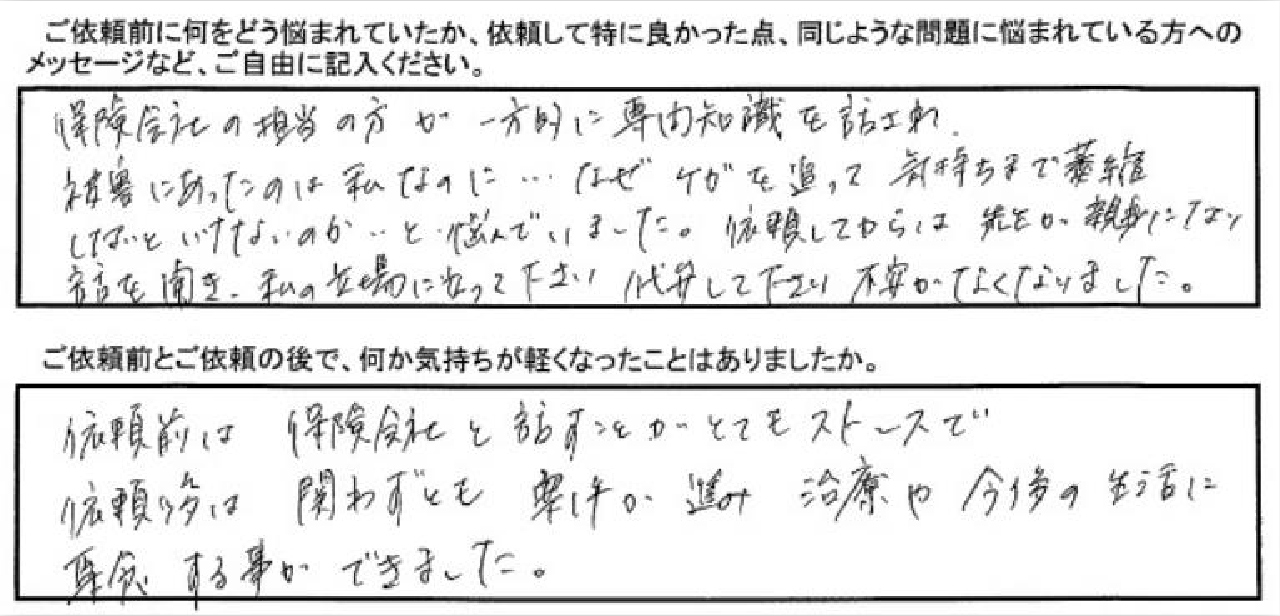 ご依頼前に何をどう悩まれていたか、依頼して特に良かった点、同じような問題に悩まれている方への
メッセージなど、ご自由に記入ください。
保険会社の担当の方が一方的に専門知識を話され、
被害にあったのは私なのに…なぜケガを追って気持ちまで萎縮
しないといけないのか‥と悩んでいました。依頼してからは先生が親身になり
話を聞き、私の立場に立って下さい代弁して下さい不安がなくなりました。
ご依頼前とご依頼の後で、何か気持ちが軽くなったことはありましたか。
依頼前は 保険会社と話すことがとてもストレスで
依頼後は 関わずとも 案件が進み 治療や今後の生活に
専念する事ができました。